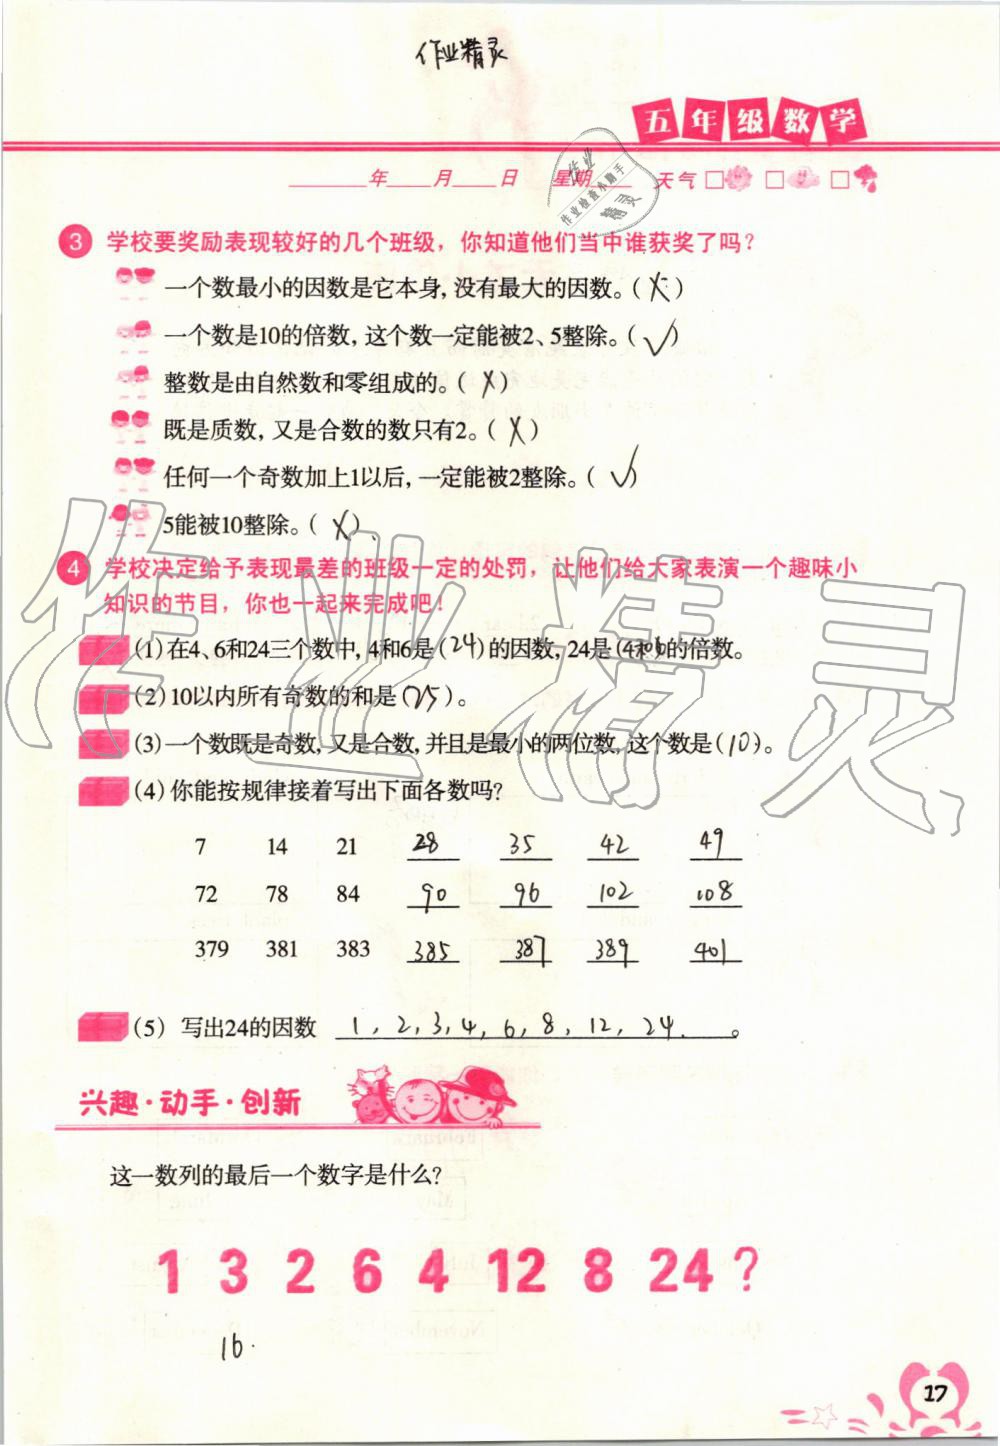 作业精灵
五年级数学
____年____月____日 星期____ 天气 □ □ □
作业
作业检查小助手
精灵
3 学校要奖励表现较好的几个班级，你知道他们当中谁获奖了吗？
一个数最小的因数是它本身，没有最大的因数。（ × ）
一个数是10的倍数，这个数一定能被2、5整除。（ √ ）
整数是由自然数和零组成的。（ × ）
既是质数，又是合数的数只有2。（ × ）
任何一个奇数加上1以后，一定能被2整除。（ √ ）
5能被10整除。（ × ）
4 学校决定给予表现最差的班级一定的处罚，让他们给大家表演一个趣味小
知识的节目，你也一起来完成吧！
(1)在4、6和24三个数中，4和6是（24）的因数，24是（4和6）的倍数。
(2)10以内所有奇数的和是（25）。
(3)一个数既是奇数，又是合数，并且是最小的两位数，这个数是（10）。
(4)你能按规律接着写出下面各数吗？
7 14 21 28 35 42 49
72 78 84 90 96 102 108
379 381 383 385 387 389 401
(5) 写出24的因数 1，2，3，4，6，8，12，24. 。
兴趣·动手·创新
这一数列的最后一个数字是什么？
1 3 2 6 4 12 8 24 ?
16.
17
作业精灵